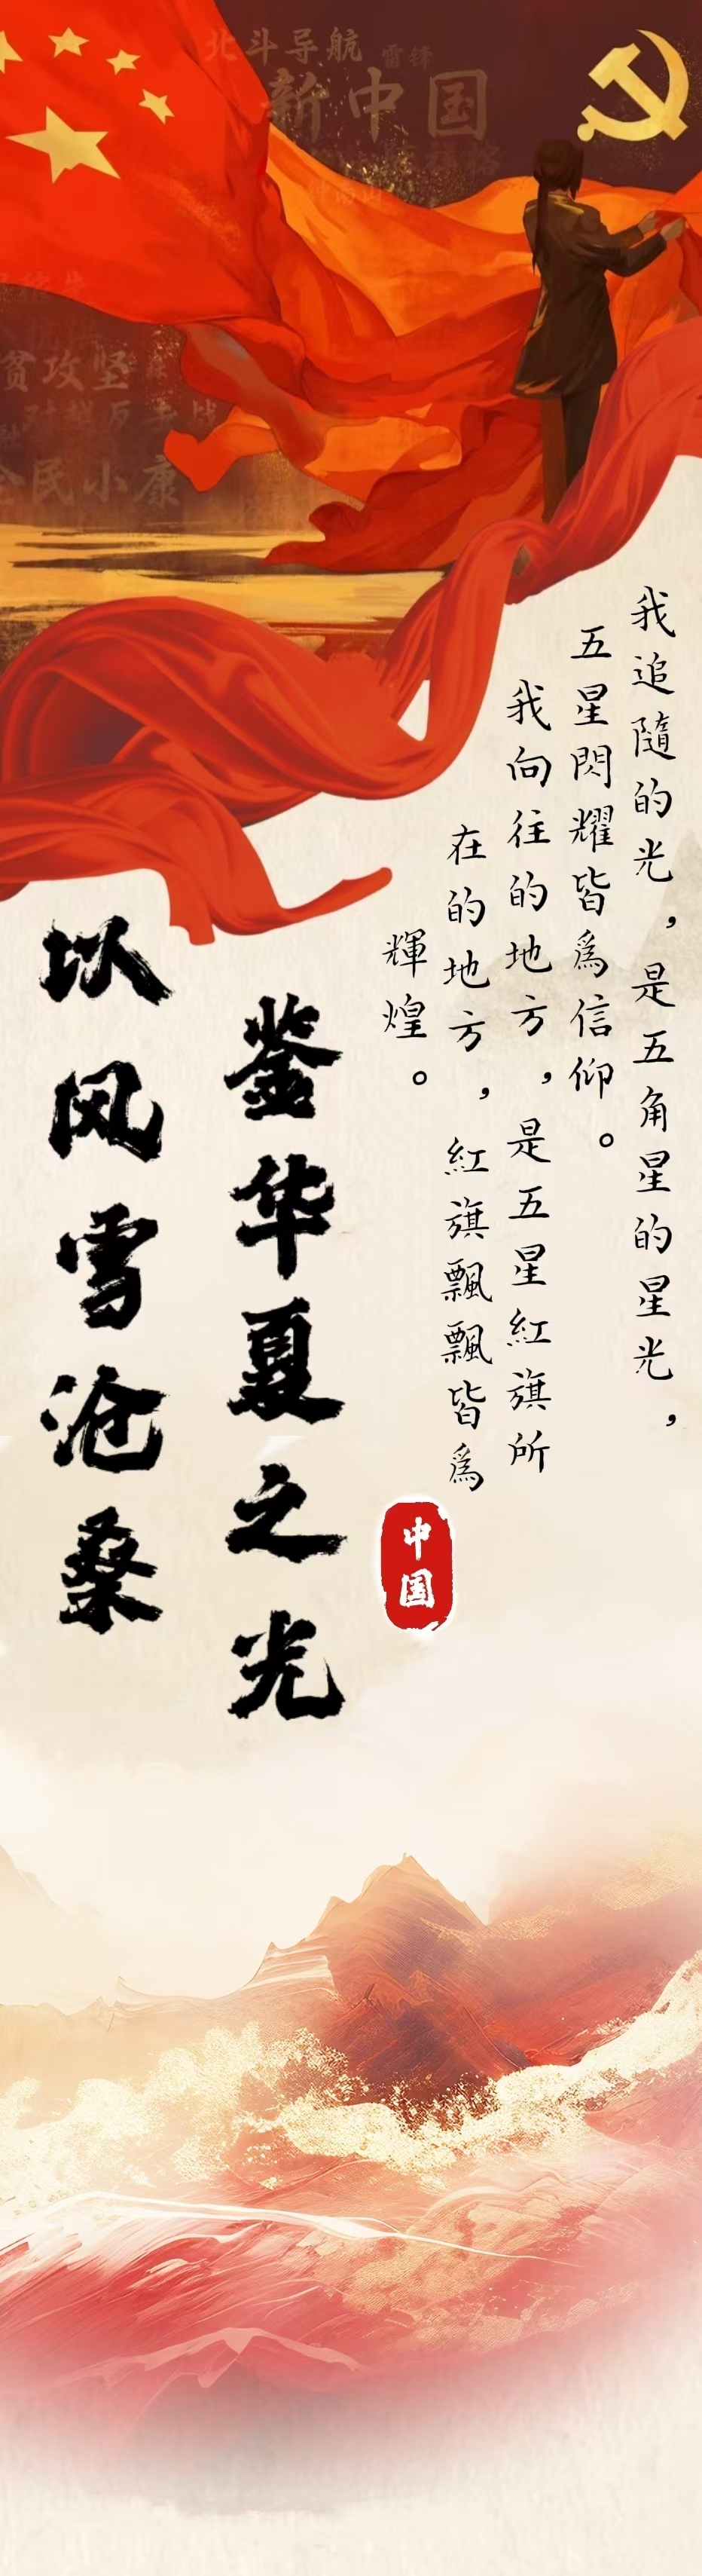 北斗导航
雷锋
新中国
钟南山
贫攻坚
全民小康
我追隨的光，是五角星的星光，
五星閃耀皆為信仰。
我向往的地方，是五星紅旗所
在的地方，紅旗飄飄皆為
輝煌。
鉴华夏之光
以风雪沧桑
中国